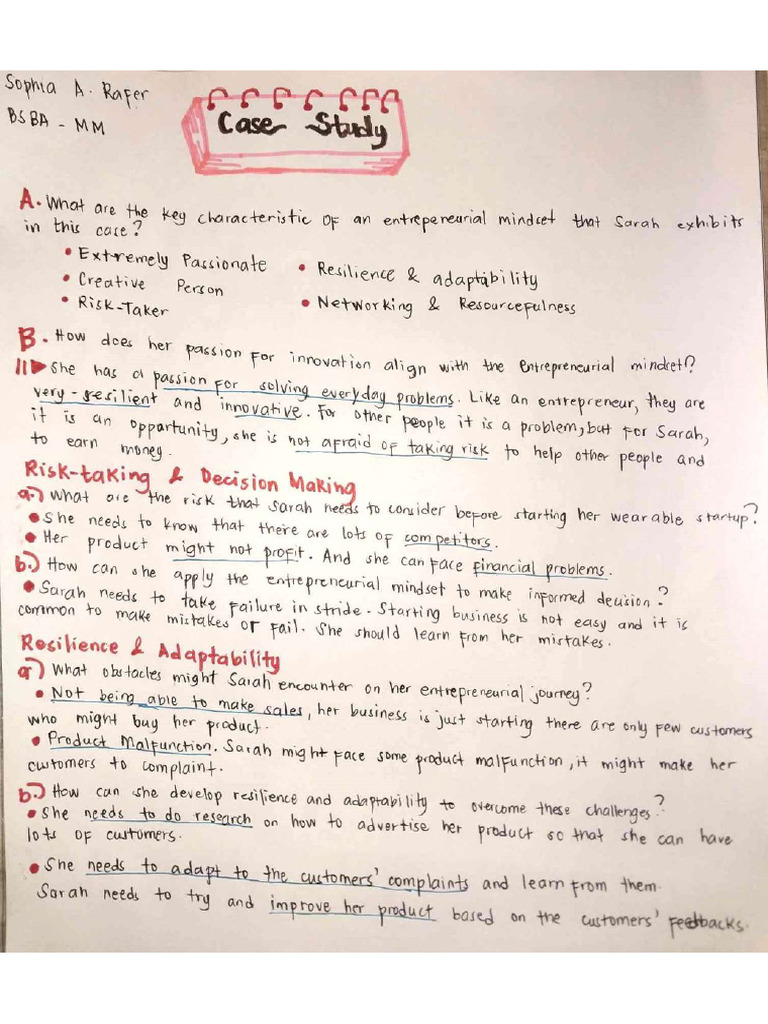 Sophia A. Rafer
BSBA - MM
Case Study
A. What are the key characteristic of an entrepeneurial mindset that Sarah exhibits
in this case?
• Extremely Passionate
• Creative Person
• Risk-Taker
• Resilience & adaptability
• Networking & Resourcefulness
B. How does her passion for innovation align with the entrepreneurial mindset?
She has a passion for solving everyday problems. Like an entrepreneur, they are
very-resilient and innovative. For other people it is a problem, but for Sarah,
it is an opportunity, she is not afraid of taking risk to help other people and
to earn money.
Risk-taking & Decision Making
a.) What are the risk that Sarah needs to consider before starting her wearable startup?
• She needs to know that there are lots of competitors.
• Her product might not profit. And she can face financial problems.
b.) How can she apply the entrepreneurial mindset to make informed decision?
• Sarah needs to take failure in stride. Starting business is not easy and it is
common to make mistakes or fail. She should learn from her mistakes.
Resilience & Adaptability
a.) What obstacles might Sarah encounter on her entrepreneurial journey?
• Not being able to make sales, her business is just starting there are only few customers
who might buy her product.
• Product Malfunction. Sarah might face some product malfunction, it might make her
customers to complaint.
b.) How can she develop resilience and adaptability to overcome these challenges?
• She needs to do research on how to advertise her product so that she can have
lots of customers.
• She needs to adapt to the customers' complaints and learn from them.
Sarah needs to try and improve her product based on the customers' feedbacks.